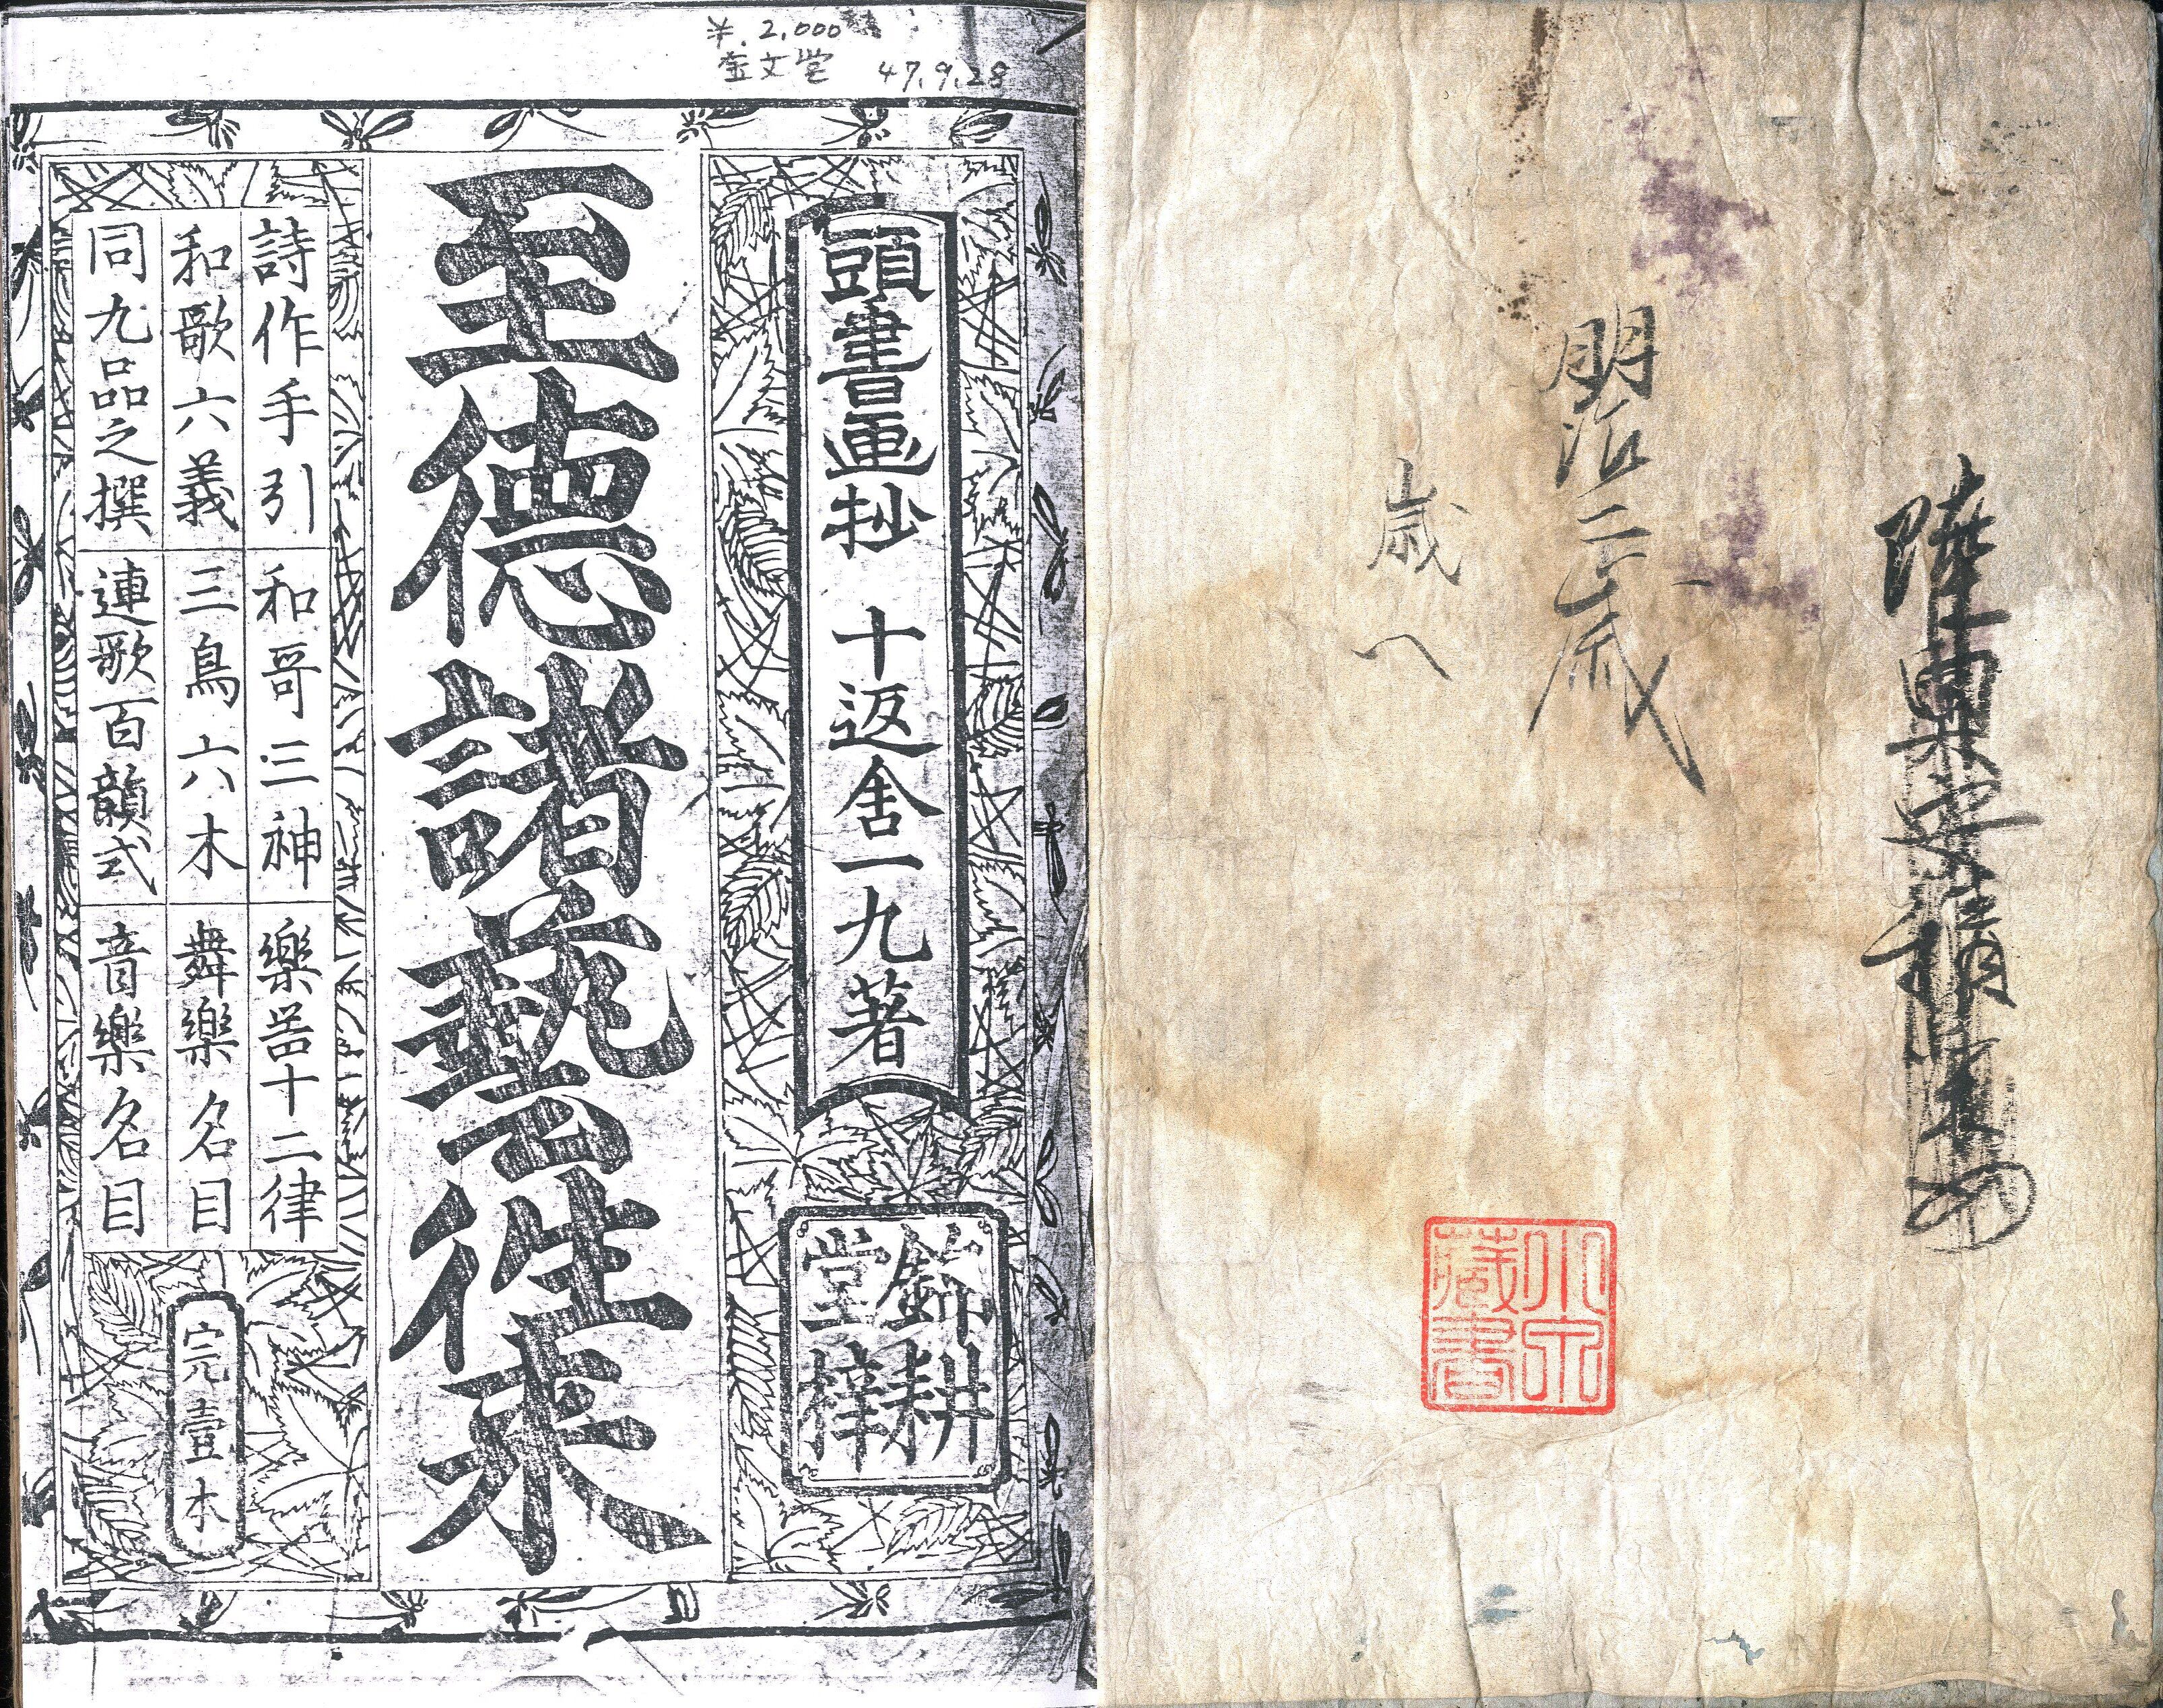 明治二歳
歳
小泉
蔵書
¥.2,000
金文堂
47.9.28
頭書畫抄 十返舎一九著
錦耕
堂梓
至德諸藝往来
詩作手引 和哥三神 樂器十二律
和歌六義 三鳥六木 舞樂名目
同九品之撰 連歌百韻式 音樂名目
完壹本